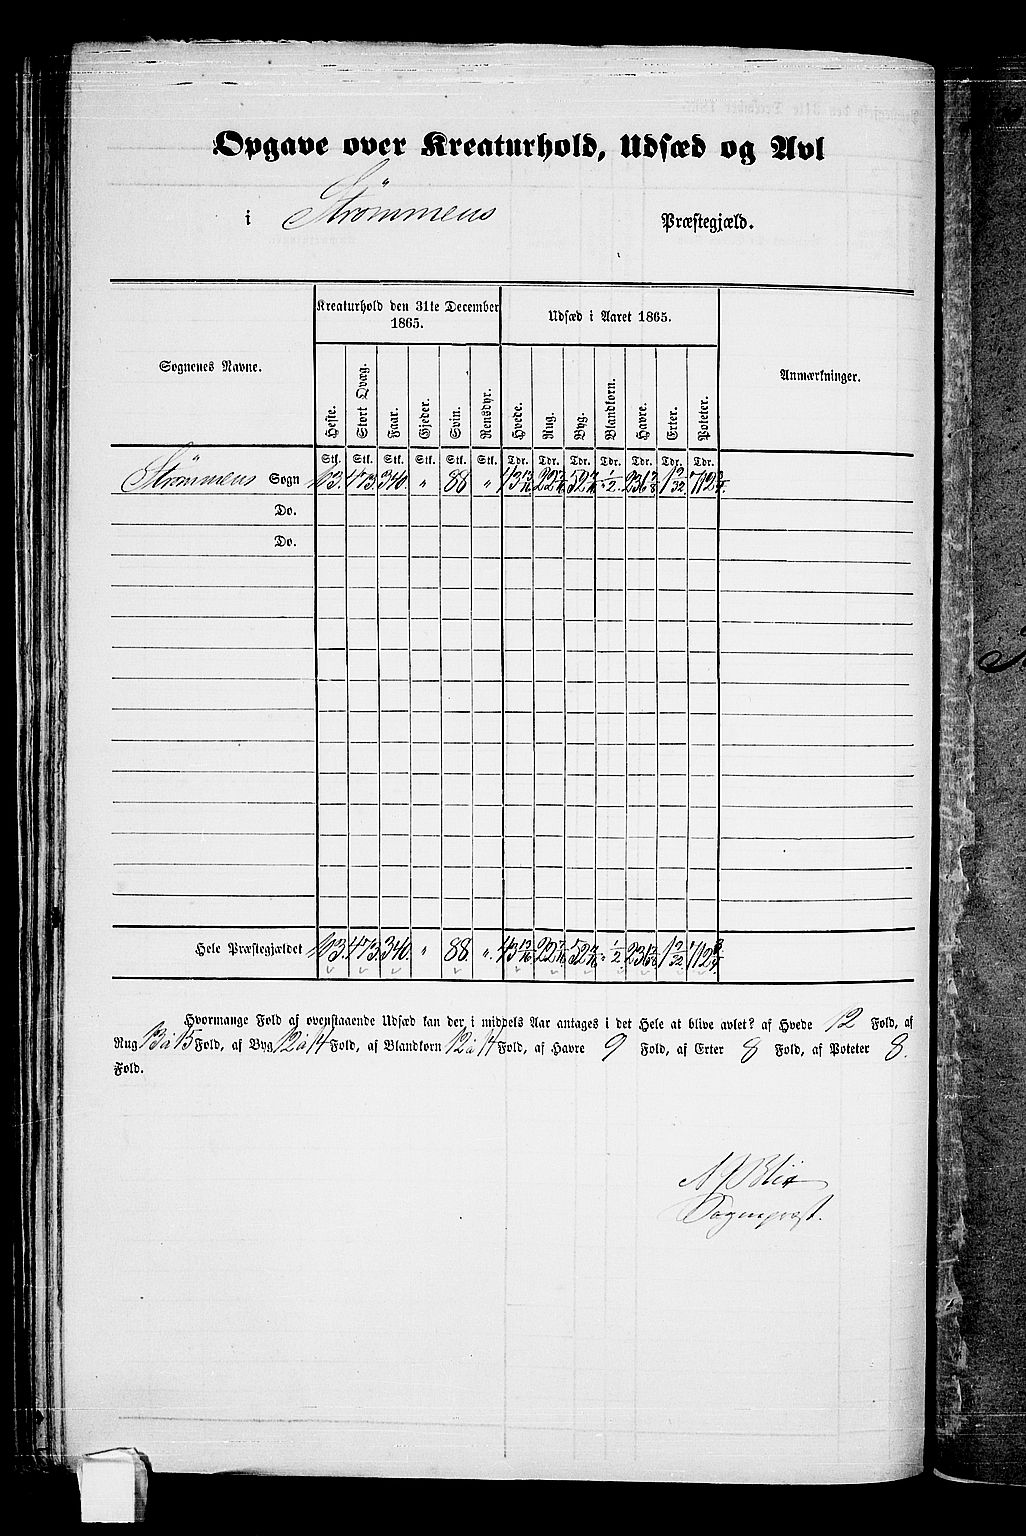 Opgave over Kreaturhold, Udsæd og Avl
i Strömmens Præstegjæld.
Sognenes Navne. Kreaturhold den 31te December 1865. Udsæd i Aaret 1865. Anmærkninger.
Heste. Stort Qvæg. Faar. Gjeder. Svin. Rensdyr. Hvede. Rug. Byg. Blandkorn. Havre. Erter. Poteter.
Stk. Stk. Stk. Stk. Stk. Stk. Tdr. Tdr. Tdr. Tdr. Tdr. Tdr. Tdr.
Strömmens Sogn 103. 473. 340. " 88 " 43 13/16 22 7/16 52 7/16 " 1/2.
Do.
Do.
Hele Præstegjældet 103. 473. 340. " 88. ". 43 13/16 22 7/16 52 7/16 " 1/2.
Hvormange Fold af ovenstaaende Udsæd kan der i middels Aar antages i det Hele at blive avlet? af Hvede 12 Fold, af
Rug 13 à 15 Fold, af Byg 12 à 14 Fold, af Blandkorn 12 à 14 Fold, af Havre 9 Fold, af Erter 8 Fold, af Poteter 8.
Fold.
Blix
Sognepræst.